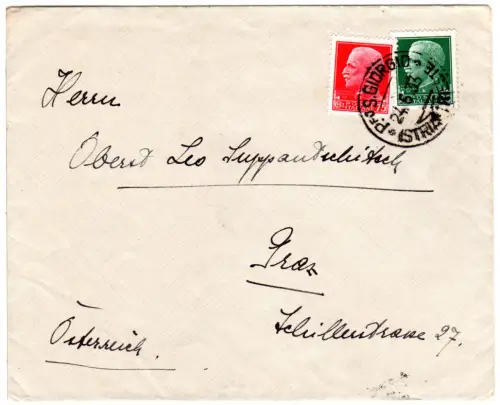 Herrn
Oberst Leo Suppantschitsch
Graz
Schillerstrasse 27.
Österreich.
S. GIORGIO
ISTRIA